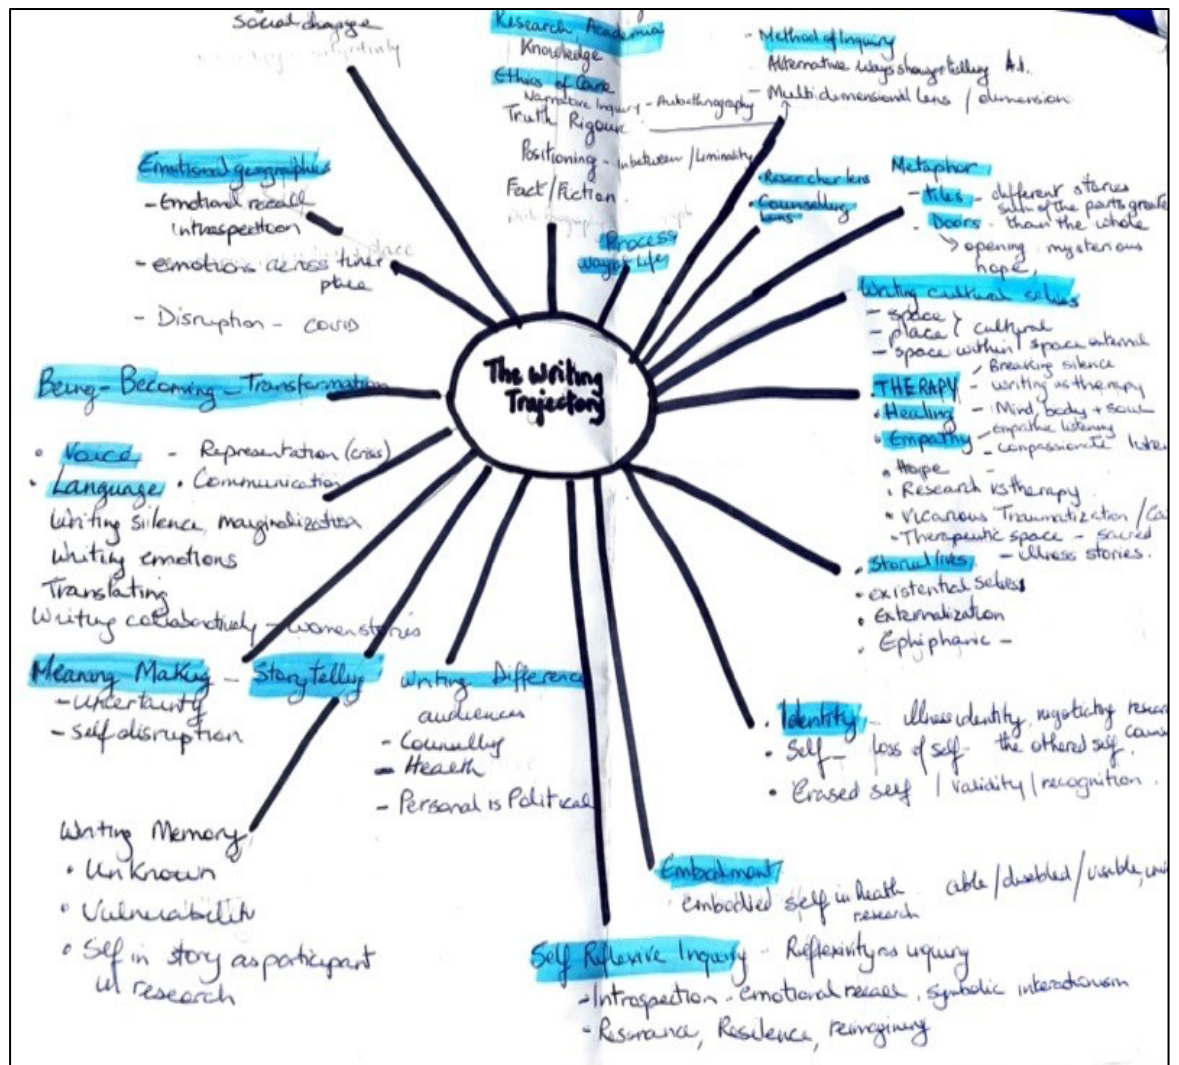 Social change
Research, Academia
Knowledge
Ethics of Care
Narrative Inquiry - Autoethnography
Truth Rigour
Positioning - inbetween / Liminality
Fact/Fiction
Process
way of Life
- Method of Inquiry
Alternative ways show + telling A.I.
- Multidimensional Lens / dimension
• Researcher lens
• Counselling
Lens
Metaphor
- tiles - different stories
sum of the parts greater
• Doors - than the whole
opening mysterious
hope,
Writing cultural selves
- space
- place } cultural
- space within space external
• THERAPY - Breaking silence
- writing as therapy
• Healing - Mind, body + soul
• Empathy - Empathic listening
- compassionate
• Hope -
• Research vs therapy
• Vicarious Traumatization /
• Therapeutic space - sacred
• Storied lives - illness stories.
• existential selves
• Externalization
• Ephiphanic -
• Identity - illness identity, negotiating
• Self - loss of self - the othered self
• Erased self / Validity / recognition.
Embodiment
embodied self in health able/disabled/visible,
research
Self Reflexive Inquiry - Reflexivity as inquiry
- Introspection - emotional recall, symbolic interactionism
- Resonance, Resilence, reimagining
Writing Difference
audiences
- Counselling
- Health
- Personal is Political
Meaning Making - Storytelling
- Uncertainty
- self disruption
Writing Memory
• Unknown
• Vulnerability
• Self in story as participant
in research
• Voice - Representation (crisis)
• Language • Communication
Writing silence, marginalization
Writing emotions
Translating
Writing collaboratively - women stories
Being - Becoming - Transformation
Emotional geographies
- Emotional recall
introspection
- emotions across time
place
- Disruption - COVID
The Writing
Trajectory